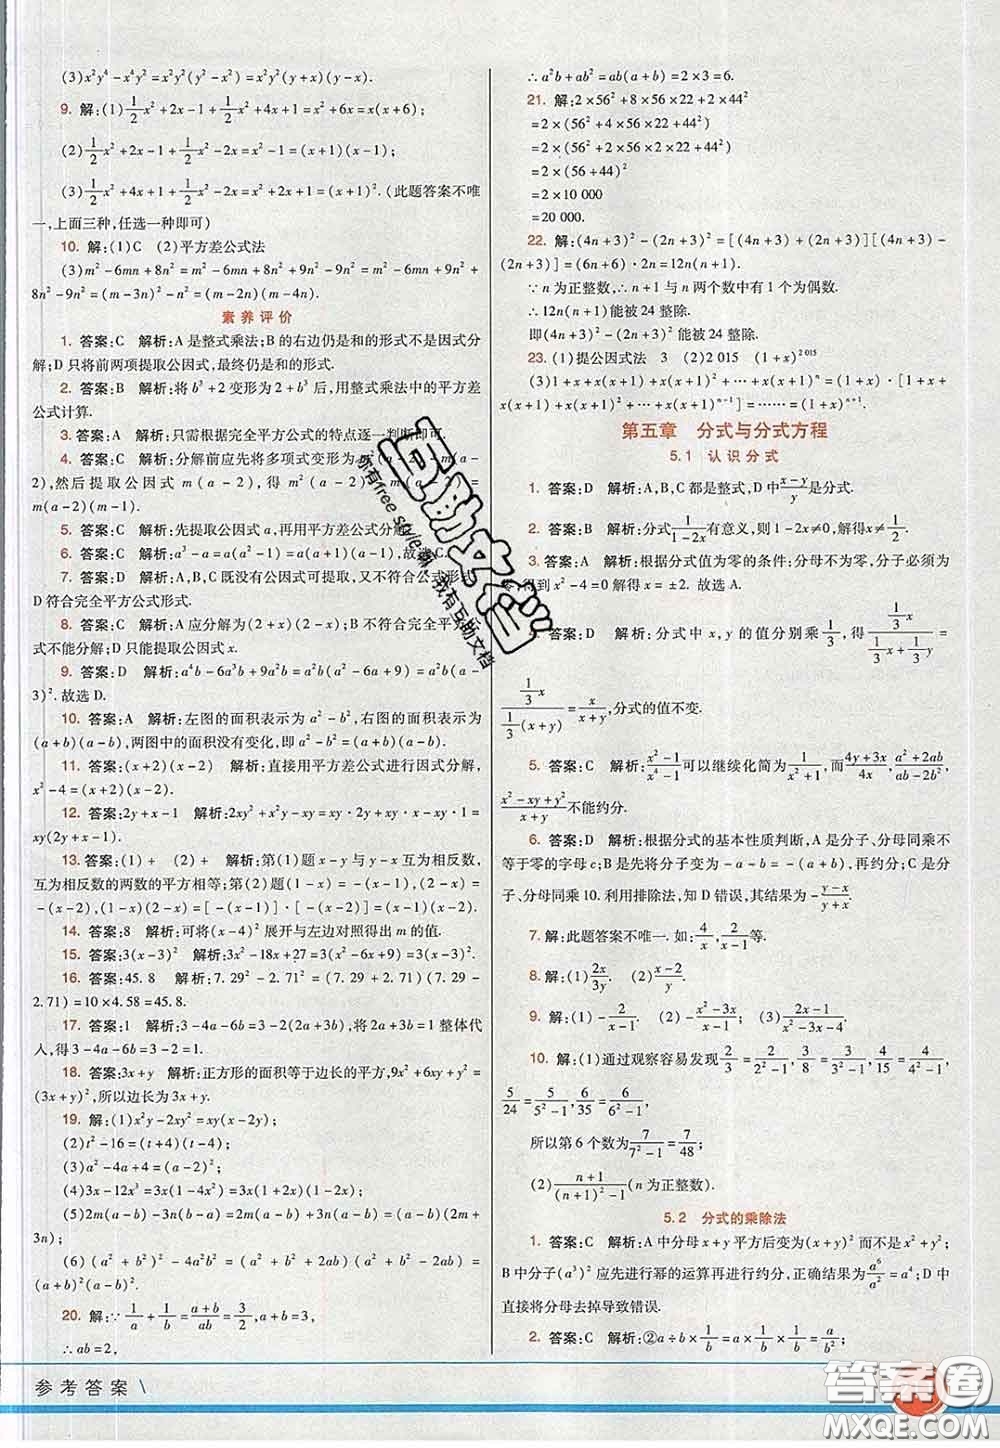 (3)x²y⁴-x⁴y²=x²y²(y²-x²)=x²y²(y+x)(y-x).
9. 解:(1)1/2x²+2x-1+1/2x²+4x+1=x²+6x=x(x+6);
(2)1/2x²+2x-1+1/2x²-2x=x²-1=(x+1)(x-1);
(3)1/2x²+4x+1+1/2x²-2x=x²+2x+1=(x+1)². (此题答案不唯
一,上面三种,任选一种即可)
10. 解:(1)C (2)平方差公式法
(3)m²-6mn+8n²=m²-6mn+8n²+n²-n²=m²-6mn+
8n²-9n²=(m-3n)²-n²=(m-2n)(m-4n).
素养评价
1. 答案:C 解析:A是整式乘法;B的右边仍是和的形式不是因式分
解;D只将前两项提取公因式,最终仍是和的形式.
2. 答案:B 解析:将b³+2变形为2+b³后,用整式乘法中的平方差
公式计算.
3. 答案:A 解析:只需根据完全平方公式的特点逐一判断即可.
4. 答案:C 解析:分解前应先将多项式变形为
2),然后提取公因式m(a-2),得m²(a-2)-m(a-2)=
m(a-2)(m-1).
5. 答案:C 解析:先提取公因式a,再用平方差公式分解
6. 答案:C 解析:a³-a=a(a²-1)=a(a+1)(a-1),故选C.
7. 答案:D 解析:A,B,C既没有公因式可提取,又不符合公式形式,
D符合完全平方公式形式.
8. 答案:C 解析:A应分解为(2+x)(2-x);B不符合完全平方
式不能分解;D只能提取公因式x.
9. 答案:D 解析:a⁴b-6a³b+9a²b=a²b(a²-6a+9)=a²b(a-
3)². 故选D.
10. 答案:A 解析:左图的面积表示为a²-b²,右图的面积表示为
(a+b)(a-b),两图中的面积没有变化,即a²-b²=(a+b)(a-b).
11. 答案:(x+2)(x-2) 解析:直接用平方差公式进行因式分解,
x²-4=(x+2)(x-2).
12. 答案:2y+x-1 解析:2xy²+x²y-xy=xy·2y+xy·x-xy·1=
xy(2y+x-1).
13. 答案:(1)+ (2)+ 解析:第(1)题x-y与y-x互为相反数,
互为相反数的两数的平方相等;第(2)题(1-x)=-(x-1),(2-x)=
-(x-2),(1-x)(2-x)=[-(x-1)]·[-(x-2)]=(x-1)(x-2).
14. 答案:8 解析:可将(x-4)²展开与左边对照得出m的值.
15. 答案:3(x-3)² 解析:3x²-18x+27=3(x²-6x+9)=3(x-3)².
16. 答案:45.8 解析:7.29²-2.71²=(7.29+2.71)(7.29-
2.71)=10×4.58=45.8.
17. 答案:1 解析:3-4a-6b=3-2(2a+3b),将2a+3b=1整体代
入,得3-4a-6b=3-2×1=1.
18. 答案:3x+y 解析:正方形的面积等于边长的平方,9x²+6xy+y²=
(3x+y)²,所以边长为3x+y.
19. 解:(1)x²y-2xy²=xy(x-2y);
(2)t²-16=(t+4)(t-4);
(3)a²-4a+4=(a-2)²;
(4)3x-12x³=3x(1-4x²)=3x(1+2x)(1-2x);
(5)2m(a-b)-3n(b-a)=2m(a-b)+3n(a-b)=(a-b)(2m+
3n);
(6)(a²+b²)²-4a²b²=(a²+b²+2ab)(a²+b²-2ab)=(a+
b)²(a-b)².
20. 解:∵1/a+1/b=(a+b)/ab=3/2,a+b=3,
∴ab=2,
∴a²b+ab²=ab(a+b)=2×3=6.
21. 解:2×56²+8×56×22+2×44²
=2×(56²+4×56×22+44²)
=2×(56²+2×56×44+44²)
=2×(56+44)²
=2×10 000
=20 000.
22. 解:(4n+3)²-(2n+3)²=[(4n+3)+(2n+3)][(4n+3)-
(2n+3)]=(6n+6)·2n=12n(n+1).
∵n为正整数,∴n+1与n两个数中必有一个为偶数.
∴12n(n+1)能被24整除.
即(4n+3)²-(2n+3)²能被24整除.
23. (1)提公因式法 3 (2)2 015 (1+x)²⁰¹⁵
(3)1+x+x(x+1)+x(x+1)²+…+x(x+1)ⁿ=(1+x)·[1+x+
x(x+1)+x(x+1)²+…+x(x+1)ⁿ⁻¹]=……=(1+x)ⁿ⁺¹.
第五章 分式与分式方程
5.1 认识分式
1. 答案:D 解析:A,B,C都是整式,D中(x-y)/y是分式.
2. 答案:B 解析:分式1/(1-2x)有意义,则1-2x≠0,解得x≠1/2.
3. 答案:A 解析:根据分式值为零的条件:分母不为零,分子必须为
零,得到x²-4=0解得x=±2. 故选A.
答案:D 解析:分式中x,y的值分别乘1/3,得(1/3x)/(1/3x+1/3y)=
(1/3x)/(1/3(x+y))=x/(x+y),分式的值不变.
5. 答案:C 解析:(x²-1)/(x⁴-1)可以继续化简为1/(x²+1),而(4y+3x)/4x,(a²+2ab)/(ab-2b²),
(x²-xy+y²)/(x+y)不能约分.
6. 答案:D 解析:根据分式的基本性质判断,A是分子、分母同乘不
等于零的字母c;B是先将分子变为-a-b=-(a+b),再约分;C是分
子、分母同乘10. 利用排除法,知D错误,其应为-(y-x)/(y+x).
7. 解:此题答案不唯一. 如:4/x,2/(x-1)等.
8. 解:(1)2x/3y. (2)(x-2)/y.
9. 解:(1)-2/(x-1). (2)-(x²-3x)/(x-1); (3)2/(x²-3x-4).
10. 解:(1)通过观察容易发现2/3=2/(2²-1),3/8=3/(3²-1),4/15=4/(4²-1),
5/24=5/(5²-1),6/35=6/(6²-1),
所以第6个数为7/(7²-1)=7/48;
(2)(n+1)/((n+1)²-1)(n为正整数).
5.2 分式的乘除法
1. 答案:C 解析:A中分母x+y平方后变为(x+y)²而不是x²+y²;
B中分子(a³)²应先进行幂的运算再进行约分,正确结果为a⁶/a²=a⁴;D中
直接将分母去掉导致错误.
2. 答案:C 解析:②a÷b×1/b=a×1/b×1/b=a/b²;
参考答案
互助文档
你有free style吗
我有互助文档
答案圈
MXQE.COM